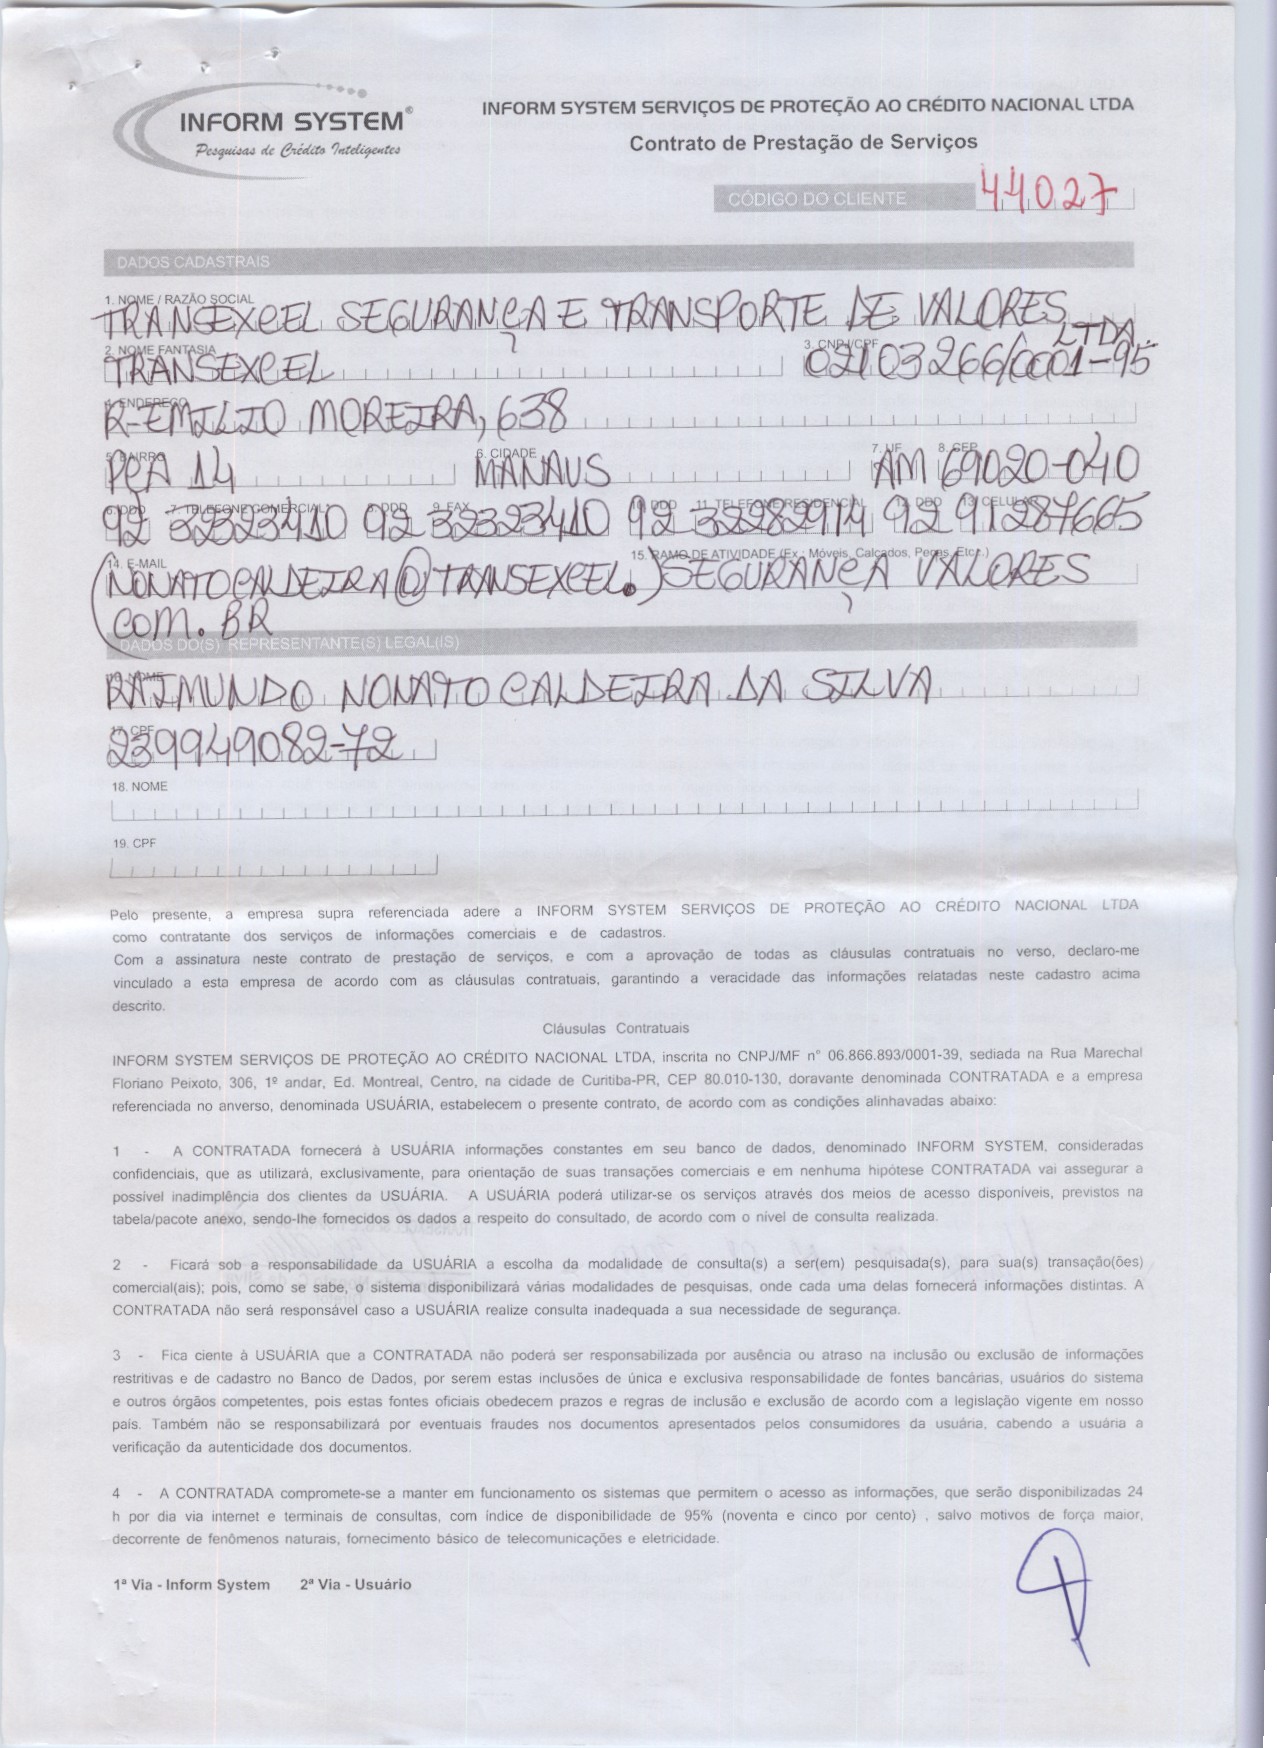 INFORM SYSTEM®
Pesquisas de Crédito Inteligentes
INFORM SYSTEM SERVIÇOS DE PROTEÇÃO AO CRÉDITO NACIONAL LTDA
Contrato de Prestação de Serviços
CÓDIGO DO CLIENTE 44027
DADOS CADASTRAIS
1. NOME / RAZÃO SOCIAL
TRANSEXCEL SEGURANÇA E TRANSPORTE DE VALORES LTDA.
2. NOME FANTASIA 3. CNPJ/CPF
TRANSEXCEL 02103266/0001-95
4. ENDEREÇO
R-EMILIO MOREIRA, 638
5. BAIRRO 6. CIDADE 7. UF 8. CEP
PÇA 14 MANAUS AM 69020-040
6. DDD 7. TELEFONE COMERCIAL 8. DDD 9. FAX 10. DDD 11. TELEFONE RESIDENCIAL 12. DDD 13. CELULAR
92 32323410 92 32323410 92 32282914 92 91287665
14. E-MAIL 15. RAMO DE ATIVIDADE (Ex.: Móveis, Calçados, Peças, Etc..)
NONATOCALDEIRA@TRANSEXCEL. SEGURANÇA VALORES
COM.BR
DADOS DO(S) REPRESENTANTE(S) LEGAL(IS)
16. NOME
RAIMUNDO NONATO CALDEIRA DA SILVA
17. CPF
239949082-72
18. NOME
19. CPF
Pelo presente, a empresa supra referenciada adere a INFORM SYSTEM SERVIÇOS DE PROTEÇÃO AO CRÉDITO NACIONAL LTDA
como contratante dos serviços de informações comerciais e de cadastros.
Com a assinatura neste contrato de prestação de serviços, e com a aprovação de todas as cláusulas contratuais no verso, declaro-me
vinculado a esta empresa de acordo com as cláusulas contratuais, garantindo a veracidade das informações relatadas neste cadastro acima
descrito.
Cláusulas Contratuais
INFORM SYSTEM SERVIÇOS DE PROTEÇÃO AO CRÉDITO NACIONAL LTDA, inscrita no CNPJ/MF n° 06.866.893/0001-39, sediada na Rua Marechal
Floriano Peixoto, 306, 1º andar, Ed. Montreal, Centro, na cidade de Curitiba-PR, CEP 80.010-130, doravante denominada CONTRATADA e a empresa
referenciada no anverso, denominada USUÁRIA, estabelecem o presente contrato, de acordo com as condições alinhavadas abaixo:
1 - A CONTRATADA fornecerá à USUÁRIA informações constantes em seu banco de dados, denominado INFORM SYSTEM, consideradas
confidenciais, que as utilizará, exclusivamente, para orientação de suas transações comerciais e em nenhuma hipótese CONTRATADA vai assegurar a
possível inadimplência dos clientes da USUÁRIA. A USUÁRIA poderá utilizar-se os serviços através dos meios de acesso disponíveis, previstos na
tabela/pacote anexo, sendo-lhe fornecidos os dados a respeito do consultado, de acordo com o nível de consulta realizada.
2 - Ficará sob a responsabilidade da USUÁRIA a escolha da modalidade de consulta(s) a ser(em) pesquisada(s), para sua(s) transação(ões)
comercial(ais); pois, como se sabe, o sistema disponibilizará várias modalidades de pesquisas, onde cada uma delas fornecerá informações distintas. A
CONTRATADA não será responsável caso a USUÁRIA realize consulta inadequada a sua necessidade de segurança.
3 - Fica ciente à USUÁRIA que a CONTRATADA não poderá ser responsabilizada por ausência ou atraso na inclusão ou exclusão de informações
restritivas e de cadastro no Banco de Dados, por serem estas inclusões de única e exclusiva responsabilidade de fontes bancárias, usuários do sistema
e outros órgãos competentes, pois estas fontes oficiais obedecem prazos e regras de inclusão e exclusão de acordo com a legislação vigente em nosso
país. Também não se responsabilizará por eventuais fraudes nos documentos apresentados pelos consumidores da usuária, cabendo a usuária a
verificação da autenticidade dos documentos.
4 - A CONTRATADA compromete-se a manter em funcionamento os sistemas que permitem o acesso as informações, que serão disponibilizadas 24
h por dia via internet e terminais de consultas, com índice de disponibilidade de 95% (noventa e cinco por cento) , salvo motivos de força maior,
decorrente de fenômenos naturais, fornecimento básico de telecomunicações e eletricidade.
1ª Via - Inform System 2ª Via - Usuário